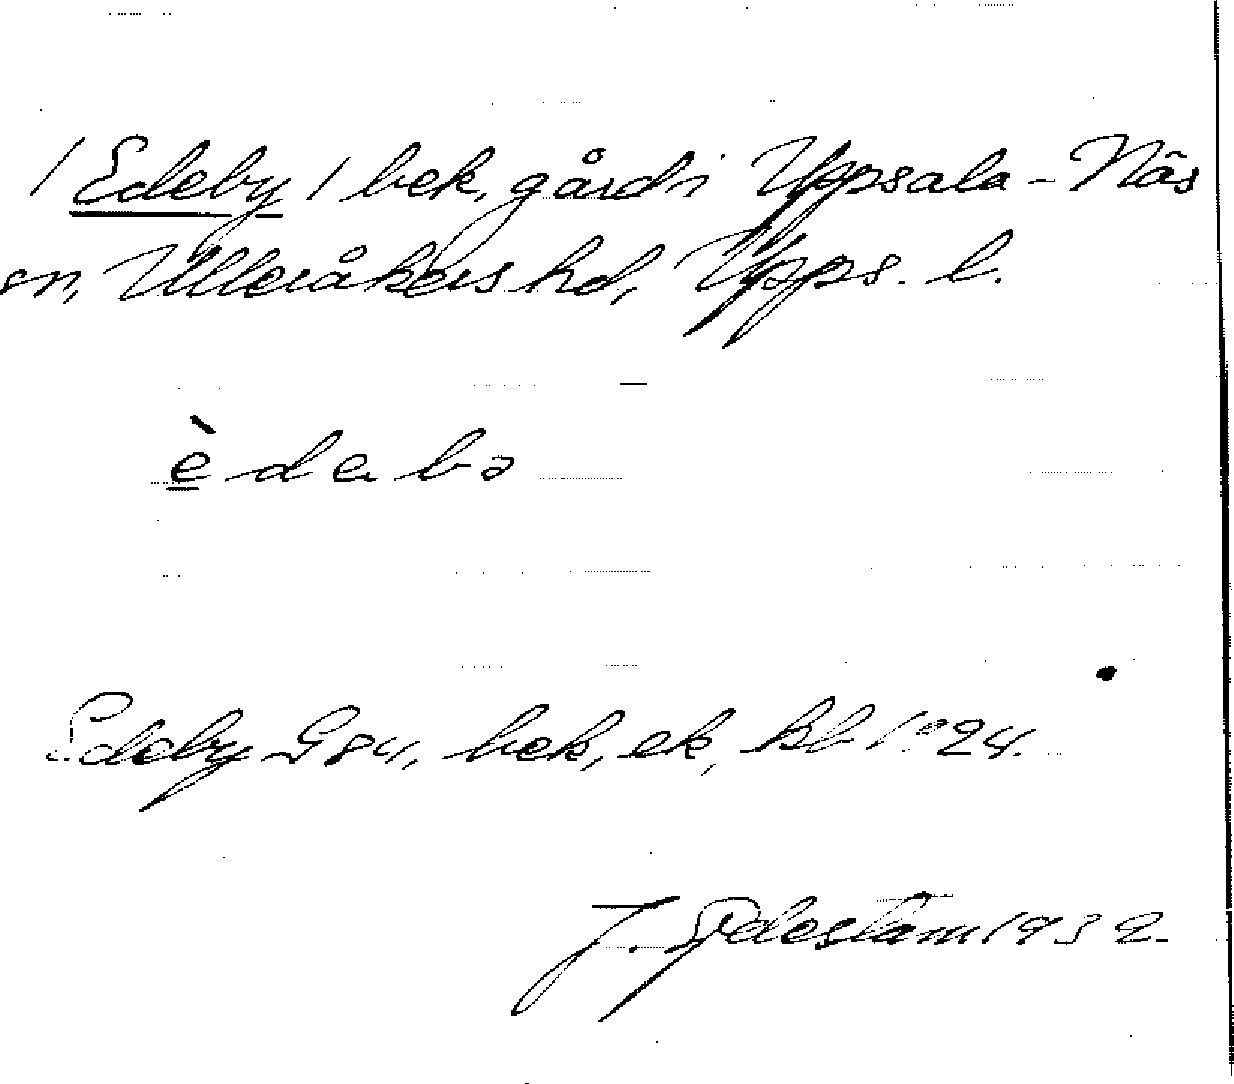 / Edeby / bek, gård i Uppsala-Näs
sn, Ulleråkers hd, Upps. l.
è d a b ə
Edeby G 84, bek, ek, kbl 1:o 24.
J. Ödestam 1932.